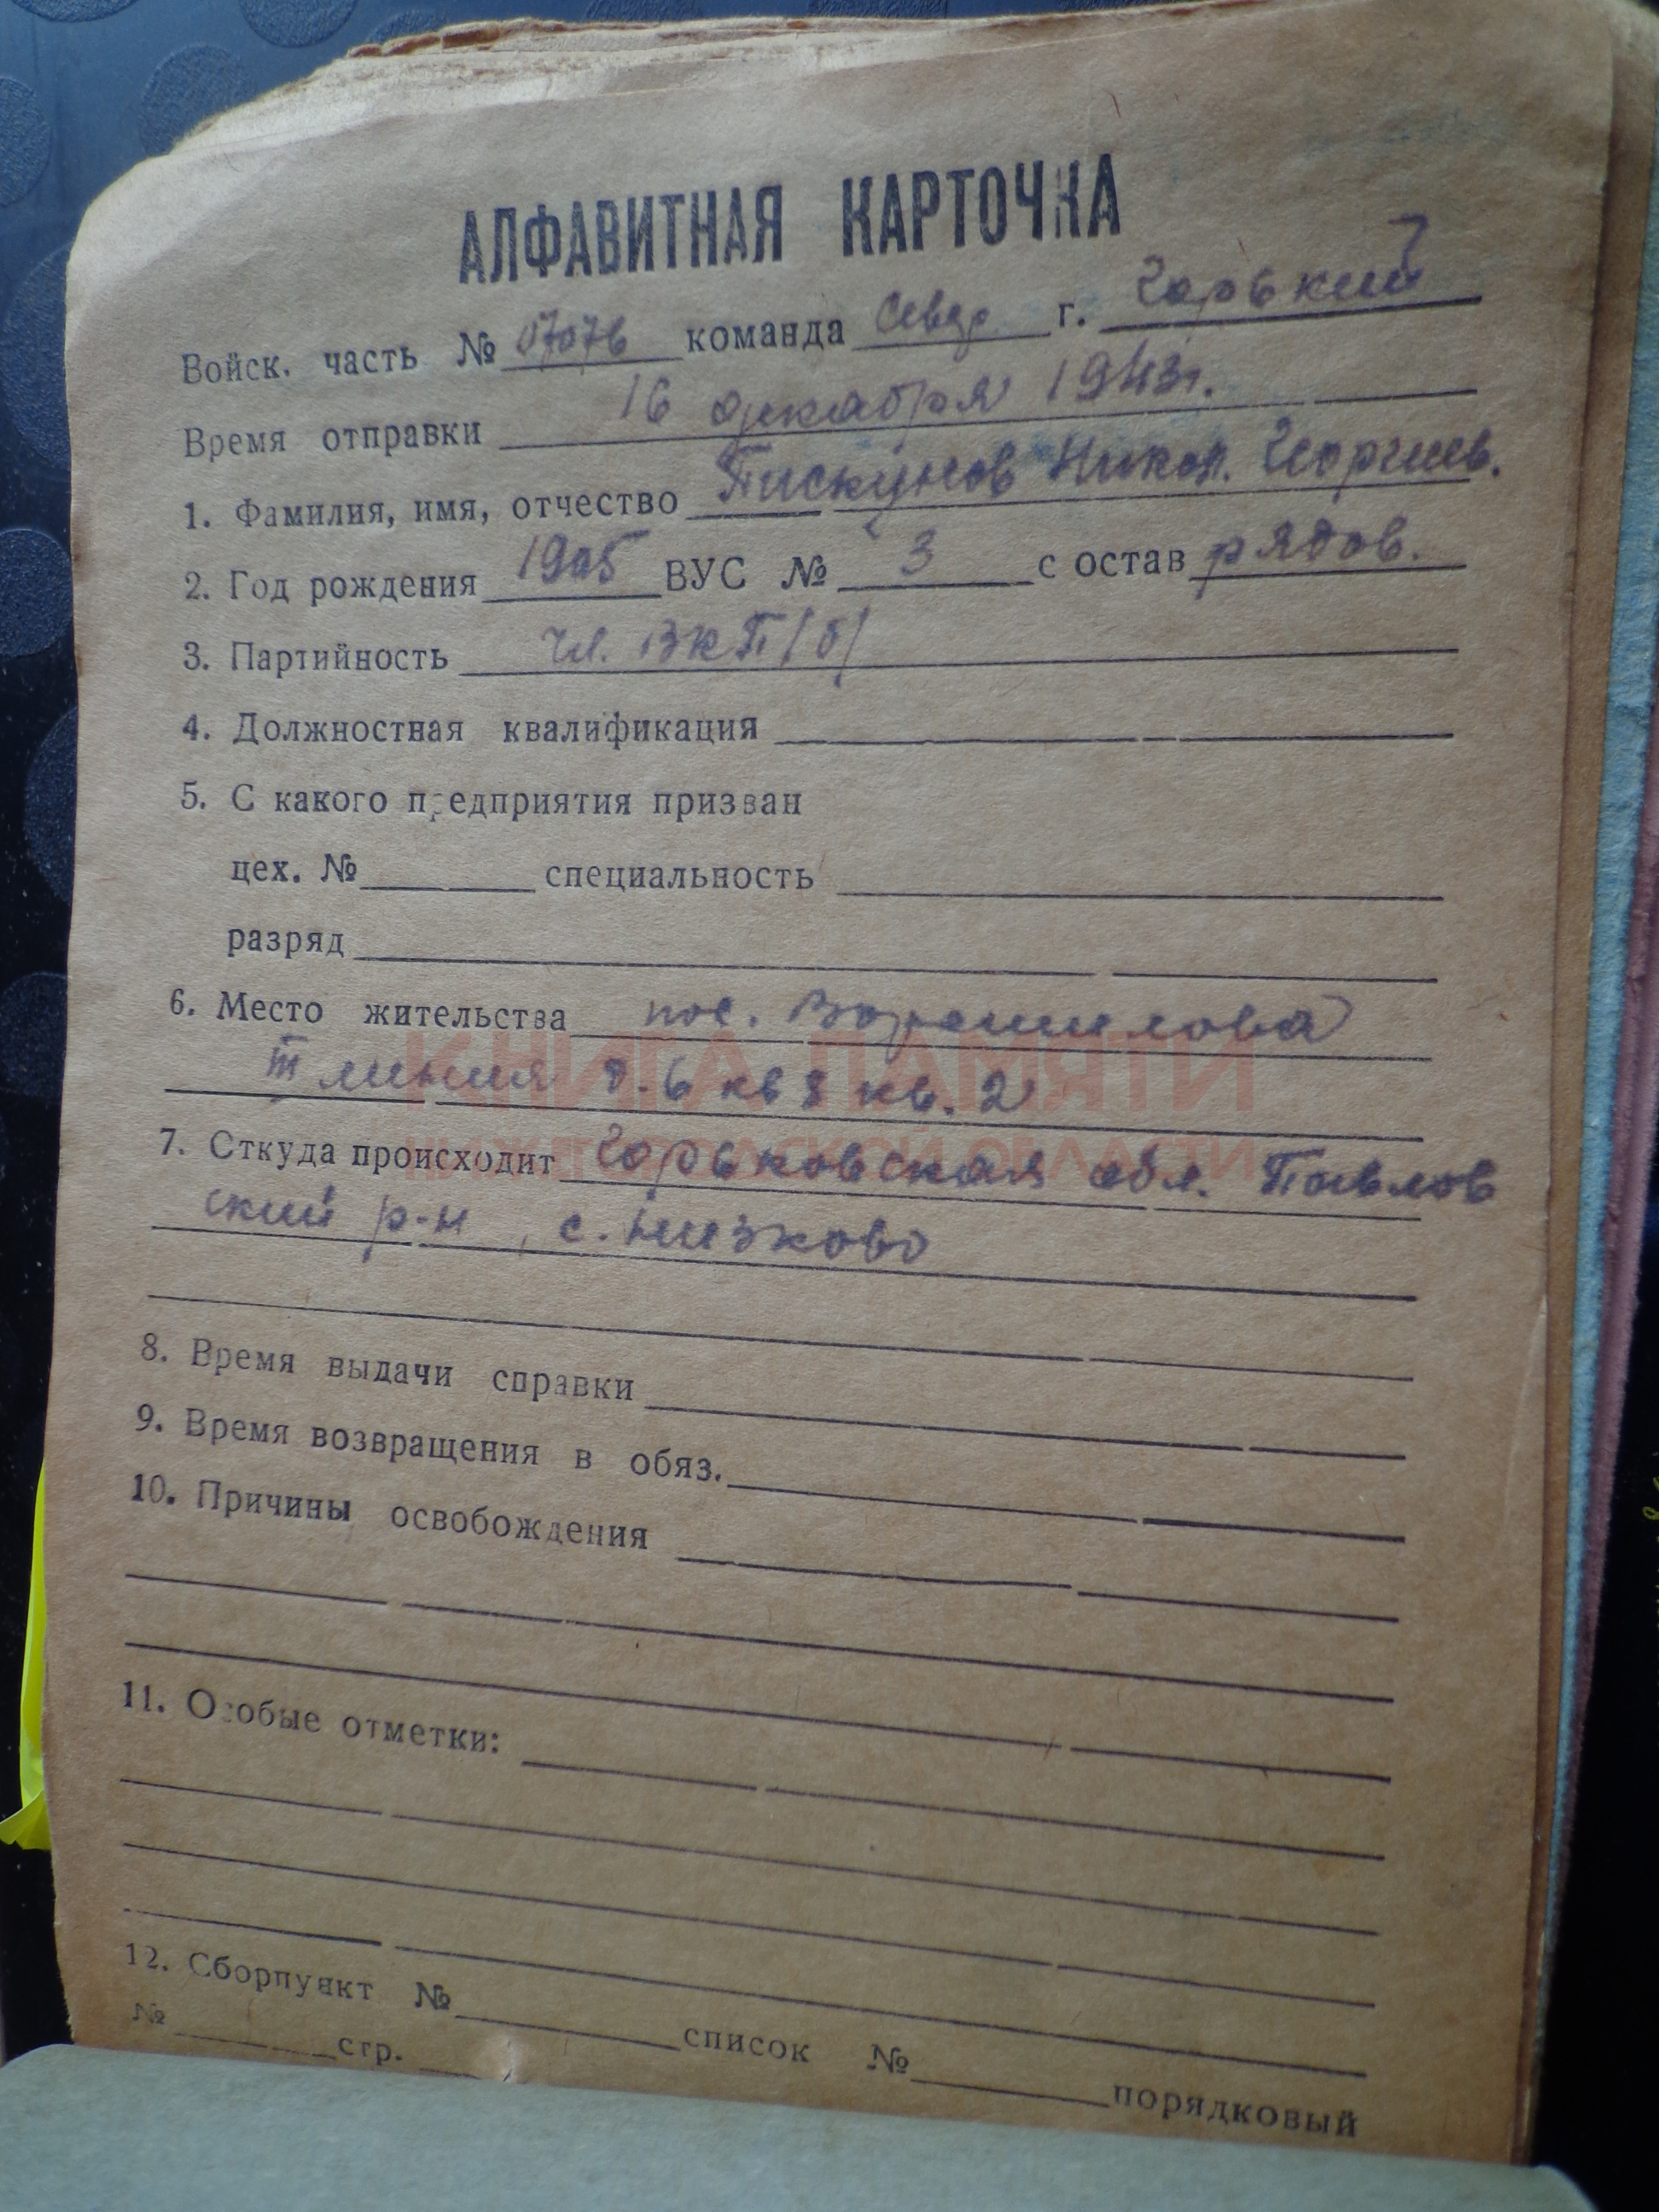 АЛФАВИТНАЯ КАРТОЧКА
Войск. часть № 07076 команда г. Горький
Время отправки 16 декабря 1943г.
1. Фамилия, имя, отчество Пискунов Никол. Георгиев.
2. Год рождения 1905 ВУС № 3 состав рядов.
3. Партийность чл. ВКП/б/
4. Должностная квалификация
5. С какого предприятия призван
цех. № специальность
разряд
6. Место жительства пос. Ворошилова
линия кв. 2
7. Откуда происходит Горьковская обл. Павлов
ский р-н, с. Низково
8. Время выдачи справки
9. Время возвращения в обяз.
10. Причины освобождения
11. Особые отметки:
12. Сборпункт № список № порядковый
№ стр.
КНИГА ПАМЯТИ
НИЖЕГОРОДСКОЙ ОБЛАСТИ